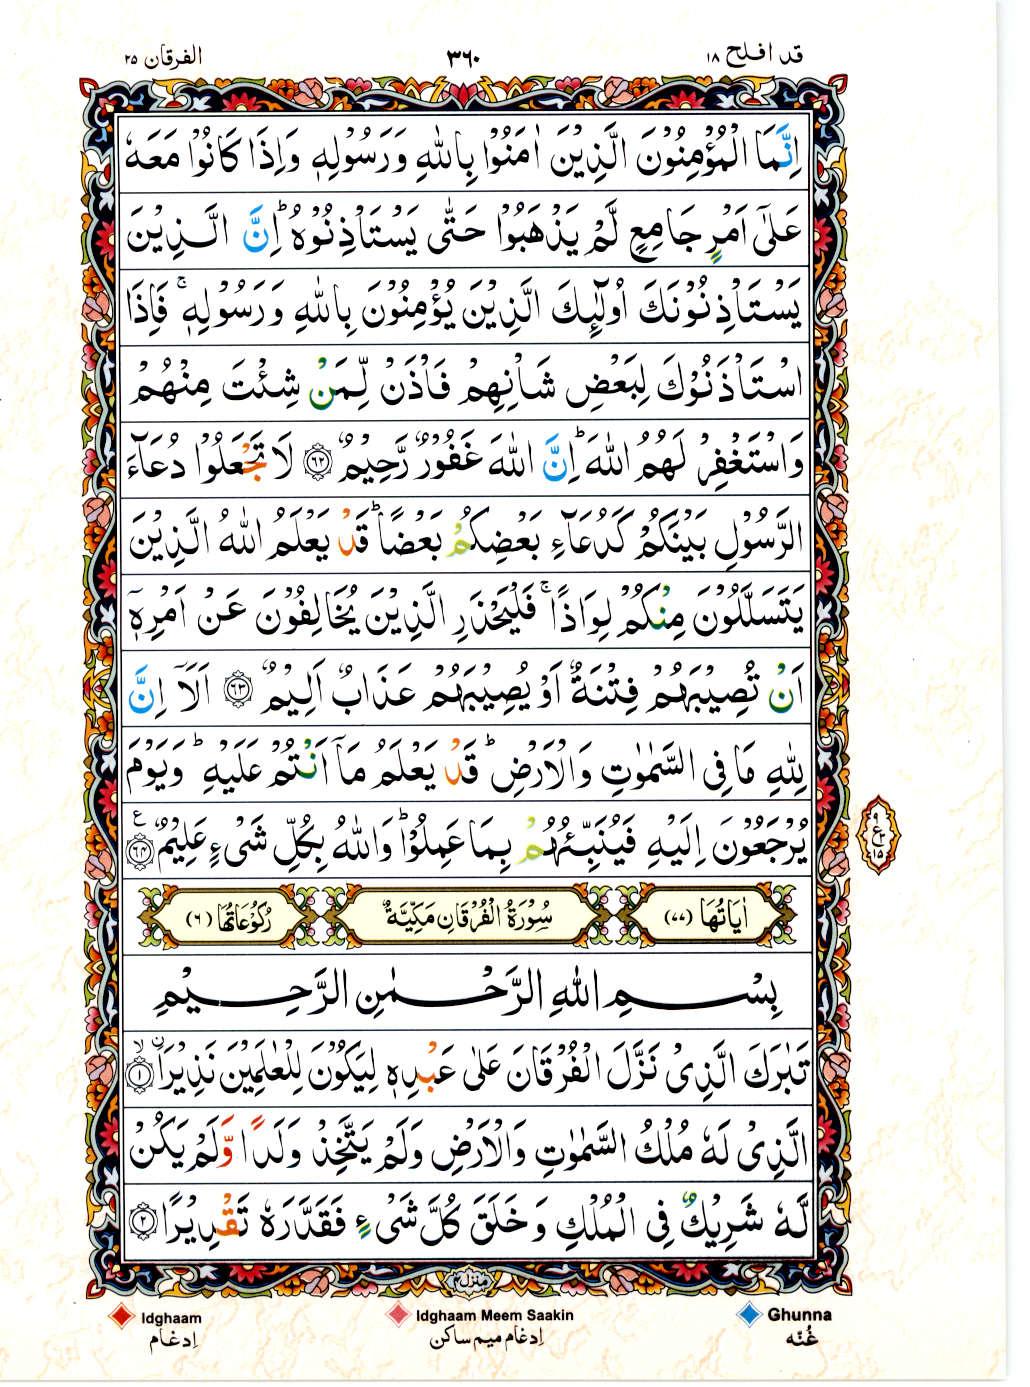 قد افلح ١٨
٣٦٠
الفرقان ٢٥
اِنَّمَا الْمُؤْمِنُوْنَ الَّذِيْنَ اٰمَنُوْا بِاللّٰهِ وَرَسُوْلِهٖ وَاِذَا كَانُوْا مَعَهٗ
عَلٰٓى اَمْرٍ جَامِعٍ لَّمْ يَذْهَبُوْا حَتّٰى يَسْتَاْذِنُوْهُ ؕ اِنَّ الَّذِيْنَ
يَسْتَاْذِنُوْنَكَ اُولٰٓئِكَ الَّذِيْنَ يُؤْمِنُوْنَ بِاللّٰهِ وَرَسُوْلِهٖ ۚ فَاِذَا
اسْتَاْذَنُوْكَ لِبَعْضِ شَاْنِهِمْ فَاْذَنْ لِّمَنْ شِئْتَ مِنْهُمْ
وَاسْتَغْفِرْ لَهُمُ اللّٰهَ ؕ اِنَّ اللّٰهَ غَفُوْرٌ رَّحِيْمٌ ﴿٦٢﴾ لَا تَجْعَلُوْا دُعَآءَ
الرَّسُوْلِ بَيْنَكُمْ كَدُعَآءِ بَعْضِكُمْ بَعْضًا ؕ قَدْ يَعْلَمُ اللّٰهُ الَّذِيْنَ
يَتَسَلَّلُوْنَ مِنْكُمْ لِوَاذًا ۚ فَلْيَحْذَرِ الَّذِيْنَ يُخَالِفُوْنَ عَنْ اَمْرِهٖٓ
اَنْ تُصِيْبَهُمْ فِتْنَةٌ اَوْ يُصِيْبَهُمْ عَذَابٌ اَلِيْمٌ ﴿٦٣﴾ اَلَاۤ اِنَّ
لِلّٰهِ مَا فِى السَّمٰوٰتِ وَالْاَرْضِ ؕ قَدْ يَعْلَمُ مَاۤ اَنْتُمْ عَلَيْهِ ؕ وَيَوْمَ
يُرْجَعُوْنَ اِلَيْهِ فَيُنَبِّئُهُمْ بِمَا عَمِلُوْا ؕ وَاللّٰهُ بِكُلِّ شَىْءٍ عَلِيْمٌ ﴿٦٤﴾ ع
٩ ع ٣ ١٥
اٰيَاتُهَا (٧٧) سُوْرَةُ الْفُرْقَانِ مَكِّيَّةٌ رُكُوْعَاتُهَا (٦)
بِسْمِ اللّٰهِ الرَّحْمٰنِ الرَّحِيْمِ
تَبٰرَكَ الَّذِىْ نَزَّلَ الْفُرْقَانَ عَلٰى عَبْدِهٖ لِيَكُوْنَ لِلْعٰلَمِيْنَ نَذِيْرًا ۙ ﴿١﴾
الَّذِىْ لَهٗ مُلْكُ السَّمٰوٰتِ وَالْاَرْضِ وَلَمْ يَتَّخِذْ وَلَدًا وَّلَمْ يَكُنْ
لَّهٗ شَرِيْكٌ فِى الْمُلْكِ وَخَلَقَ كُلَّ شَىْءٍ فَقَدَّرَهٗ تَقْدِيْرًا ﴿٢﴾
منزل ٤
Idghaam
اِدغام
Idghaam Meem Saakin
اِدغام میم ساکن
Ghunna
غُنّه